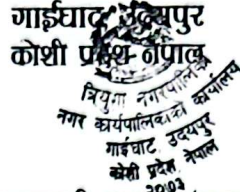 गाईघाट, उदयपुर
कोशी प्रदेश नेपाल
त्रियुगा नगरपालिका
नगर कार्यपालिकाको कार्यालय
गाईघाट, उदयपुर
कोशी प्रदेश, नेपाल
२०७३